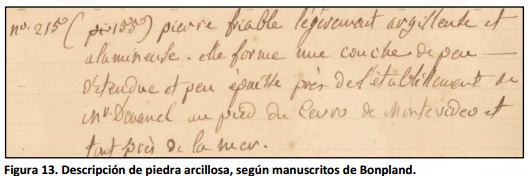 nº. 215º (pis 135º) pierre friable légèrement argilleuse et
alumineuse. elle forme une couche de peu
d'étendue et peu épaisse près de l'établissement de
Mr. Douanel au pied du Cerro de Montevideo et
tout près de la mer.
Figura 13. Descripción de piedra arcillosa, según manuscritos de Bonpland.